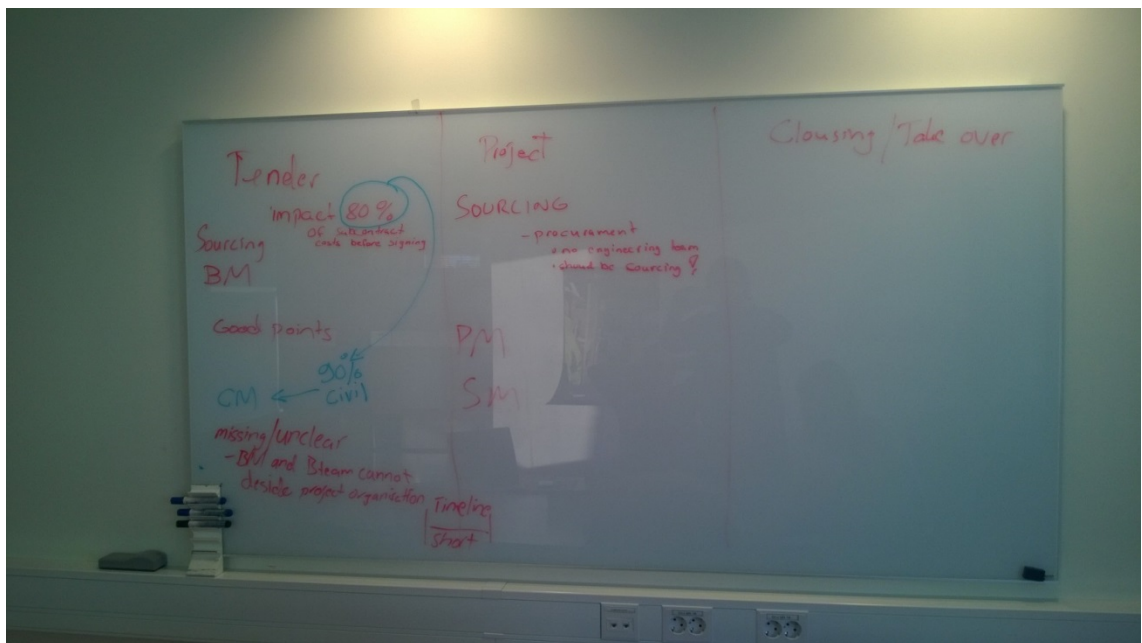 Tender
impact 80%
of subcontract
costs before signing
Sourcing
BM
Good points
90%
civil
CM
missing/unclear
- BM and Bteam cannot
deside project organisation
Timeline
short
Project
SOURCING
- procurement
• no engineering team
• should be sourcing?
PM
SM
Clousing/Take over